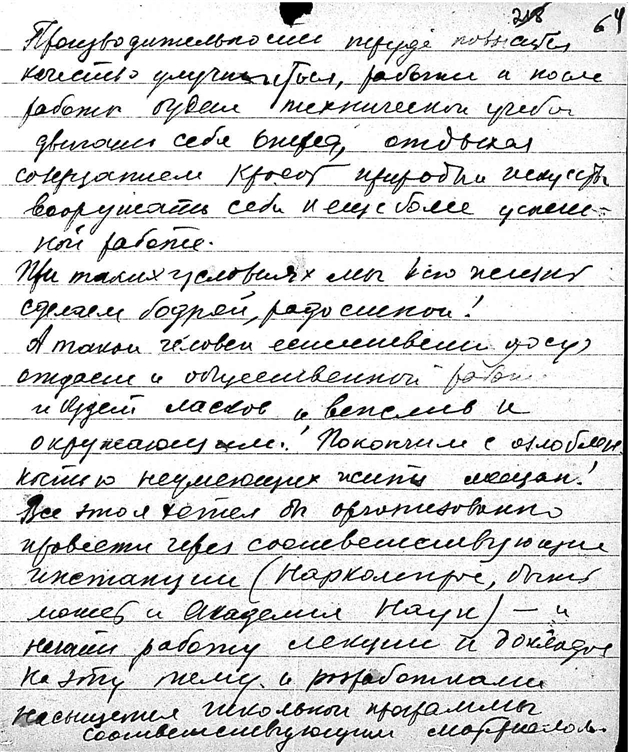 218 64
Производительности труда повысится
качество улучшиться, работы и после
работы будем технической учебой
двигать себя вперед, отдыхая
созерцанием красот природы и искусства
вооружать себя к еще более успеш-
ной работе.
При таких условиях мы всю жизнь
сделаем бодрой, радостной!
А такой человек естественно досуг
отдаст и общественной работе
и будет ласков и вежлив к
окружающим! Покончим с озлоблен-
ностью неумеющих жить мещан!
Все это я хотел бы организованно
провести через соответствующие
инстанции (Наркомпрос, быть
может и Академия Наук) — и
начать работу лекций и докладов
на эту тему и разработками
насыщения школьной программы
соответствующим материалом.